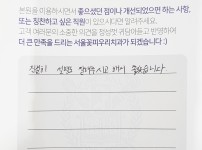 본원을 이용하시면서 좋으셨던 점이나 개선되었으면 하는 사항,
또는 칭찬하고 싶은 직원이 있으시다면 알려주세요.
고객 여러분의 소중한 의견을 정성껏 귀담아듣고 반영하여
더 큰 만족을 드리는 서울꽃마우리치과가 되겠습니다 :)
친절히 설명도 잘해주시고 해서 좋았습니다